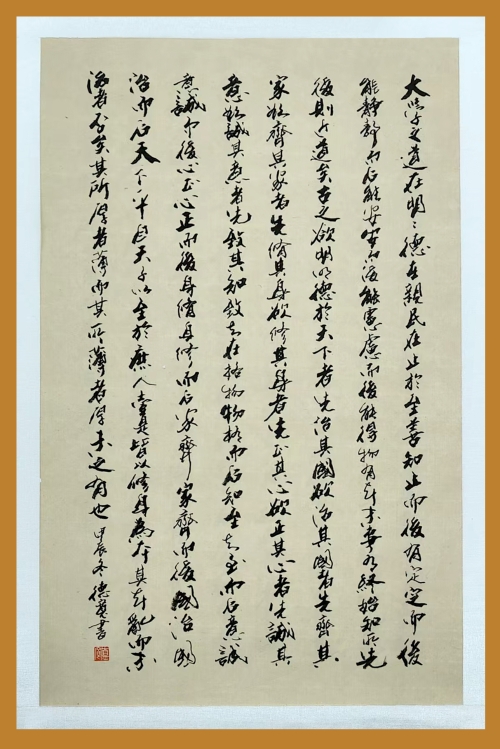 大學之道在明々德在親民在止於至善知止而後有定定而後
能靜靜而后能安安而後能慮慮而後能得物有本末事有終始知所先
後則近道矣古之欲明明德於天下者先治其國欲治其國者先齊其
家欲齊其家者先脩其身欲修其身者先正其心欲正其心者先誠其
意欲誠其意者先致其知致知在格物物格而后知至知至而后意誠
意誠而後心正心正而後身脩身修而后家齊家齊而後國治國
治而后天下平自天子以至於庶人壹是皆以修身為本其本亂而末
治者否矣其所厚者薄而其所薄者厚未之有也 甲辰冬德書